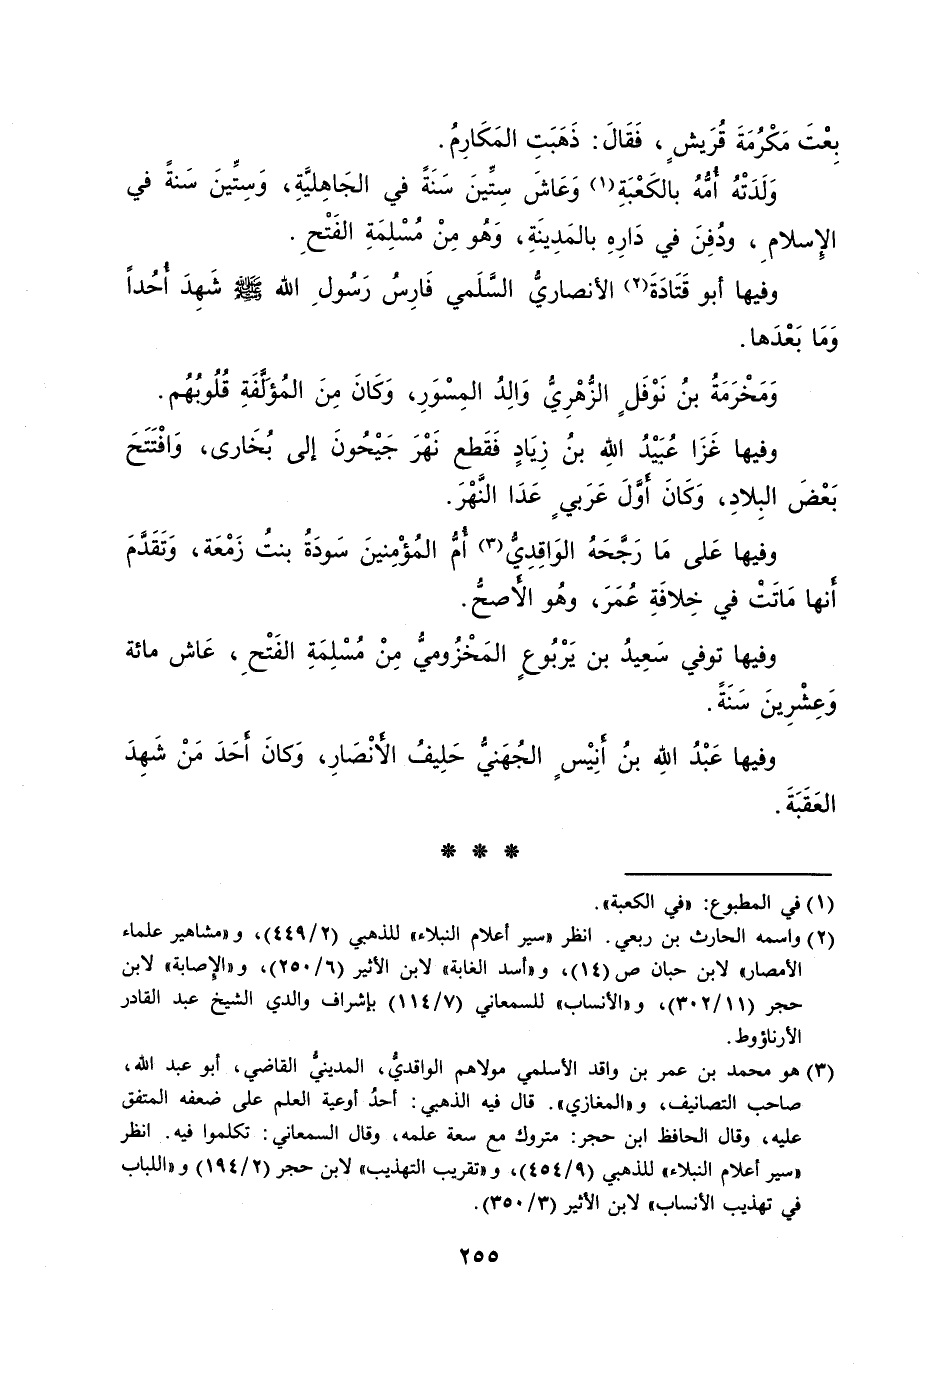 بِعْتَ مَكْرُمَةَ قُرَيشٍ، فَقَالَ: ذَهَبَتِ المَكَارِمُ.
وَلَدَتْهُ أُمُّهُ بالكَعْبَةِ(١) وَعَاشَ سِتِّينَ سَنَةً في الجَاهِليَّةِ، وَسِتِّينَ سَنةً في
الإِسلامِ، ودُفِنَ في دَارِهِ بالمَدِينَةِ، وَهُو مِنْ مُسْلِمَةِ الفَتْحِ.
وفيها أبو قَتَادَةَ(٢) الأنصاريُّ السَّلَمي فَارِسُ رَسُولِ الله ﷺ شَهِدَ أُحُداً
وَمَا بَعْدَها.
وَمَخْرَمَةُ بنُ نَوْفَلٍ الزُّهْرِيُّ وَالِدُ المِسْوَرِ، وَكَانَ مِنَ المُؤَلَّفَةِ قُلُوبُهُم.
وفيها غَزَا عُبَيْدُ اللهِ بنُ زِيَادٍ فَقَطع نَهْرَ جَيْحُونَ إلى بُخَارى، وَافْتَتَحَ
بَعْضَ البِلادِ، وَكَانَ أَوَّلَ عَرَبيٍ عَدَا النَّهْرَ.
وفيها عَلى مَا رَجَّحَهُ الوَاقِديُّ(٣) أُمُّ المُؤْمِنينَ سَودَةُ بنتُ زَمْعَة، وَتَقَدَّمَ
أَنها مَاتَتْ في خِلافَةِ عُمَرَ، وهُو الأَصحُّ.
وفيها توفي سَعِيدُ بن يَرْبُوعٍ المَخْزُوميُّ مِنْ مُسْلِمَةِ الفَتْحِ، عَاش مائة
وَعِشْرِينَ سَنَةً.
وفيها عَبْدُ اللهِ بنُ أَنِيْسٍ الجُهَنيُّ حَلِيفُ الأَنْصَارِ، وَكانَ أَحَدَ مَنْ شَهِدَ
العَقَبَةَ.
* * *
(١) في المطبوع: «في الكعبة».
(٢) واسمه الحارث بن ربعي. انظر «سير أعلام النبلاء» للذهبي (٤٤٩/٢)، و«مشاهير علماء
الأمصار» لابن حبان ص (١٤)، و«أسد الغابة» لابن الأثير (٢٥٠/٦)، و«الإصابة» لابن
حجر (٣٠٢/١١)، و«الأنساب» للسمعاني (١١٤/٧) بإشراف والدي الشيخ عبد القادر
الأرناؤوط.
(٣) هو محمد بن عمر بن واقد الأسلمي مولاهم الواقديُّ، المدينيُّ القاضي، أبو عبد الله،
صاحب التصانيف، و«المغازي». قال فيه الذهبي: أحدُ أوعية العلم على ضعفه المتفق
عليه، وقال الحافظ ابن حجر: متروك مع سعة علمه، وقال السمعاني: تكلموا فيه. انظر
«سير أعلام النبلاء» للذهبي (٤٥٤/٩)، و«تقريب التهذيب» لابن حجر (١٩٤/٢) و«اللباب
في تهذيب الأنساب» لابن الأثير (٣٥٠/٣).
٢٥٥